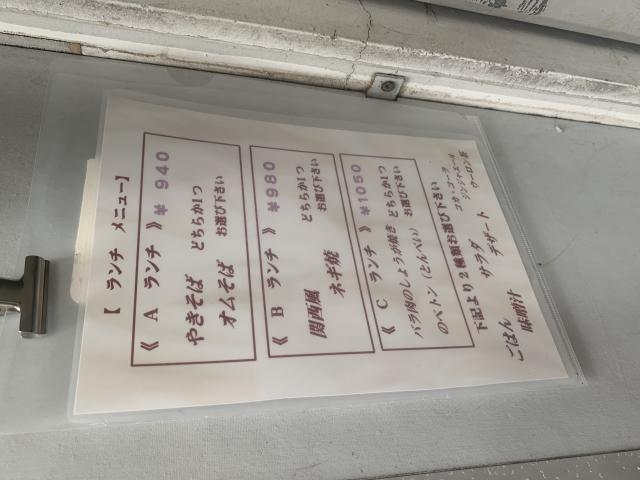 【 ランチ メニュー】
《 A ランチ 》 ¥ 940
やきそば どちらか1つ
オムそば お選び下さい
《 B ランチ 》 ¥980
関西風 どちらか1つ
ネギ焼 お選び下さい
《 C ランチ 》 ¥1050
バラ肉のしょうが焼き どちらか1つ
のペトン（とんぺい） お選び下さい
下記より2種類お選び下さい
ごはん サラダ コカ・コーラ
味噌汁 デザート ジンジャエール
ウーロン茶